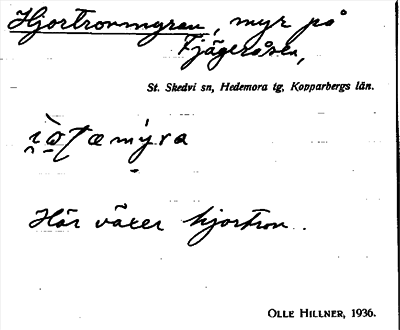 Hjortronmyren, myr på
Fjägeråsen,
St. Skedvi sn, Hedemora tg, Kopparbergs län.
Här växer hjortron.
OLLE HILLNER, 1936.